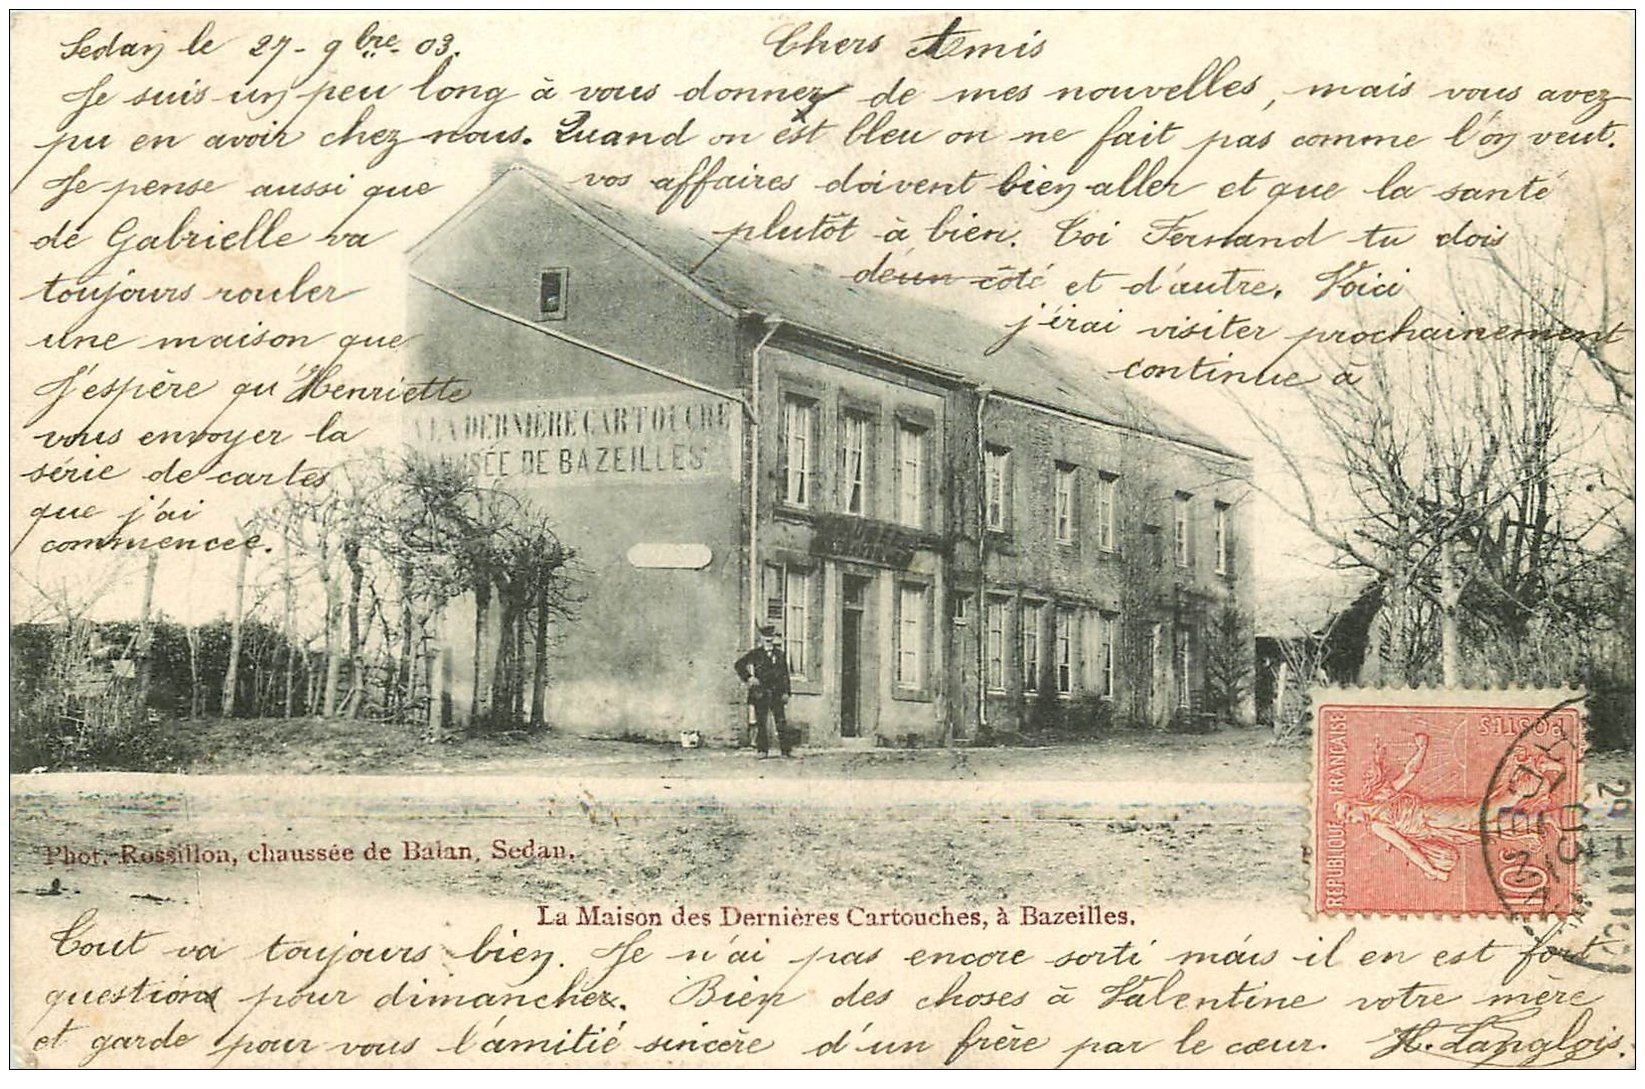 Sedan le 27-9bre-03. Chers Amis
Je suis un peu long à vous donner de mes nouvelles, mais vous avez
pu en avoir chez nous. Quand on est bleu on ne fait pas comme l'on veut.
Je pense aussi que vos affaires doivent bien aller et que la santé
de Gabrielle va plutôt à bien. Toi Fernand tu dois
toujours rouler d'eun côté et d'autre. Voici
une maison que j'irai visiter prochainement
J'espère qu'Henriette continue à
vous envoyer la
série de cartes
que j'ai
commencée.
A LA DERNIÈRE CARTOUCHE
MUSÉE DE BAZEILLES
Phot. Rossillon, chaussée de Balan, Sedan.
La Maison des Dernières Cartouches, à Bazeilles.
REPUBLIQUE FRANÇAISE
POSTES
10
Tout va toujours bien. Je n'ai pas encore sorti mais il en est fort
question pour dimanche. Bien des choses à Valentine votre mère
et garde pour vous l'amitié sincère d'un frère par le cœur. H. Langlois.